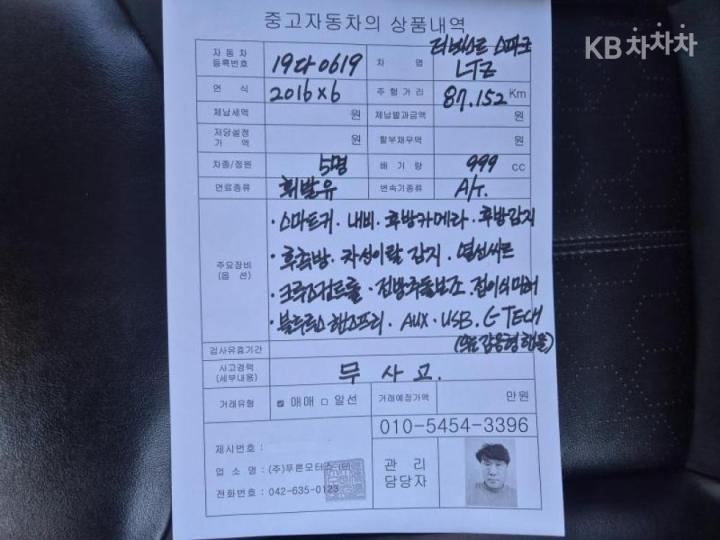 중고자동차의 상품내역
KB차차차
자 동 차 등록번호 19다0619 차 명 더넥스트 스파크 LTZ
연 식 2016 x 6 주 행 거 리 87.152 Km
체납세액 원 체납별과금액 원
저당설정 가 액 원 할부채무액 원
차종/정원 5명 배 기 량 999 cc
연료종류 휘발유 변속기종류 A/T.
주요장비 (옵 션)
·스마트키 · 내비 · 후방카메라 · 후방감지
·후측방 · 차선이탈 감지 · 열선씨트
·크루즈컨트롤 · 전방추돌보조 · 접이식미러
·블루투스 핸즈프리 · AUX · USB. C-TECH
검사유효기간
사고경력 (세부내용) 무 사 고.
거래유형 매매 알선 거래예정가액 만원
010-5454-3396
제시번호 :
업 소 명 : (주)푸른모터스
전화번호 : 042-635-0123
관 리 담당자